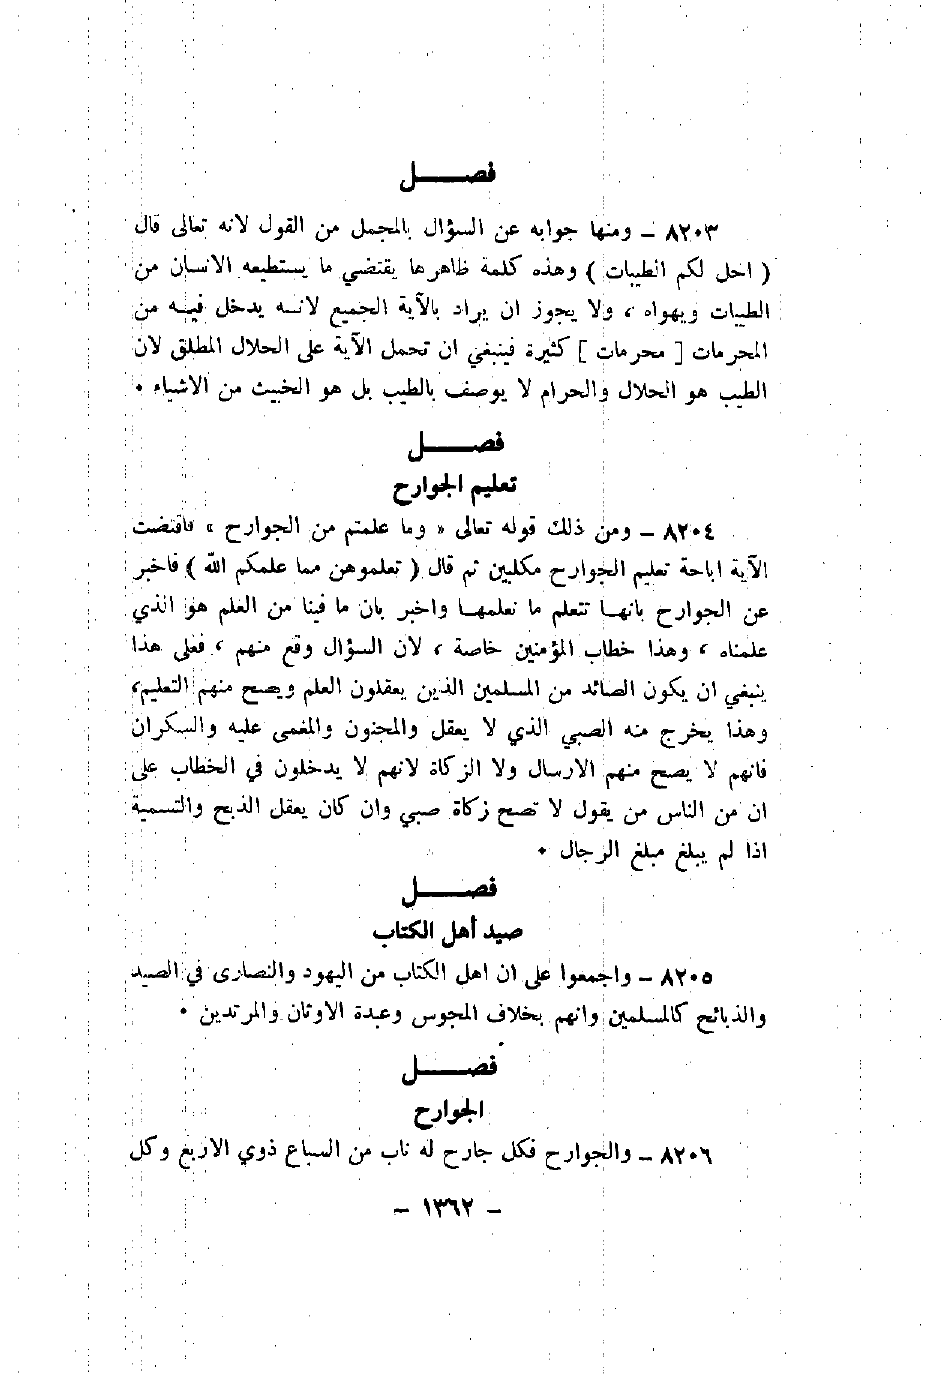 فصــــل
٨٢٠٣ ـ ومنها جوابه عن السؤال بالمجمل من القول لانه تعالى قال
( احل لكم الطيبات ) وهذه كلمة ظاهرها يقتضي ما يستطيعه الانسان من
الطيبات ويهواه ، ولا يجوز ان يراد بالآية الجميع لانــه يدخل فيــه من
المحرمات [ محرمات ] كثيرة فينبغي ان تحمل الآية على الحلال المطلق لان
الطيب هو الحلال والحرام لا يوصف بالطيب بل هو الخبيث من الاشياء ٠
فصــــل
تعليم الجوارح
٨٢٠٤ ـ ومن ذلك قوله تعالى « وما علمتم من الجوارح » فاقتضت
الآية اباحة تعليم الجوارح مكلبين ثم قال ( تعلموهن مما علمكم الله ) فاخبر
عن الجوارح بانهــا تتعلم ما نعلمهــا واخبر بان ما فينا من العلم هو الذي
علمناه ، وهذا خطاب المؤمنين خاصة ، لان السؤال وقع منهم ، فعلى هذا
ينبغي ان يكون الصائد من المسلمين الذين يعقلون العلم ويصح منهم التعليم،
وهذا يخرج منه الصبي الذي لا يعقل والمجنون والمغمى عليه والسكران
فانهم لا يصح منهم الارسال ولا الزكاة لانهم لا يدخلون في الخطاب على
ان من الناس من يقول لا تصح زكاة صبي وان كان يعقل الذبح والتسمية
اذا لم يبلغ مبلغ الرجال ٠
فصــــل
صيد أهل الكتاب
٨٢٠٥ ـ واجمعوا على ان اهل الكتاب من اليهود والنصارى في الصيد
والذبائح كالمسلمين وانهم بخلاف المجوس وعبدة الاوثان والمرتدين ٠
فصــــل
الجوارح
٨٢٠٦ ـ والجوارح فكل جارح له ناب من السباع ذوي الاربع وكل
ـ ١٣٦٢ ـ